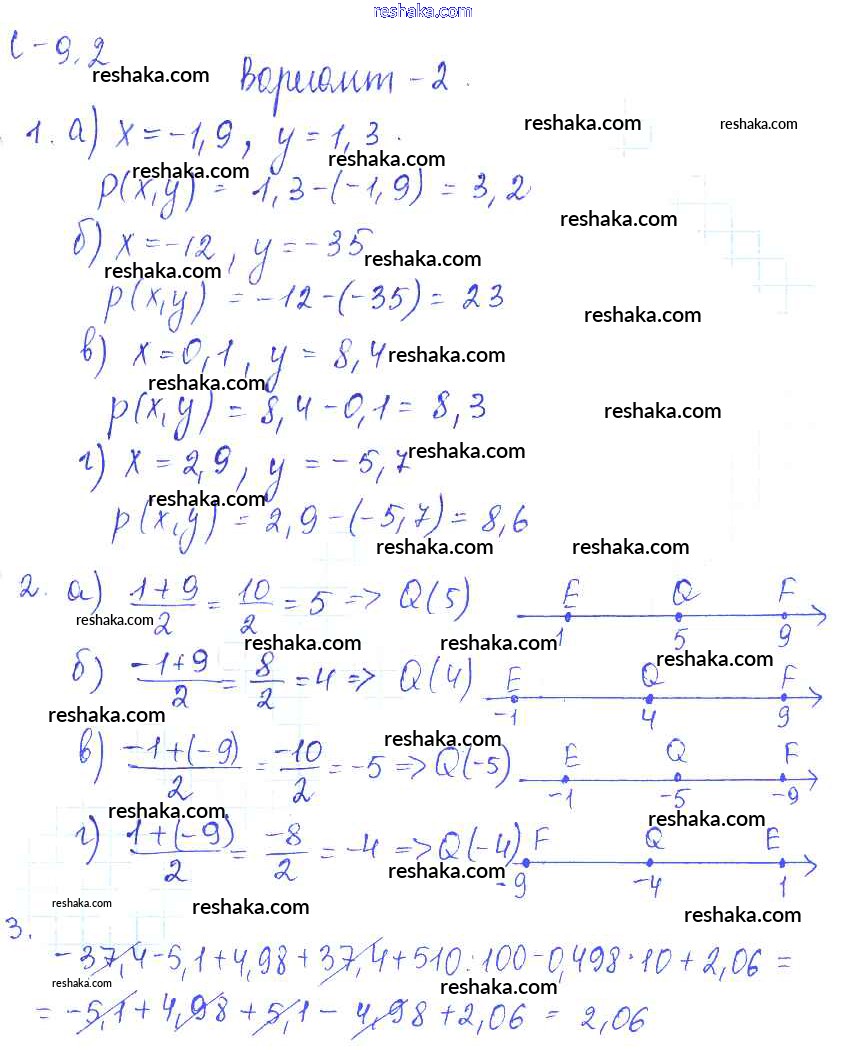 reshaka.com
С-9.2
reshaka.com
Вариант-2.
reshaka.com
reshaka.com
1. а) x=-1,9, y=1,3.
reshaka.com
reshaka.com
p(x,y) = 1,3-(-1,9) = 3,2
reshaka.com
б) x=-12, y=-35
reshaka.com
reshaka.com
p(x,y) = -12-(-35) = 23
reshaka.com
в) x=0,1, y=8,4
reshaka.com
reshaka.com
p(x,y) = 8,4-0,1 = 8,3
reshaka.com
г) x=2,9, y=-5,7
reshaka.com
reshaka.com
p(x,y) = 2,9-(-5,7) = 8,6
reshaka.com
reshaka.com
2. а) (1+9)/2 = 10/2 = 5 => Q(5) E Q F
1 5 9
reshaka.com
reshaka.com
reshaka.com
reshaka.com
б) (-1+9)/2 = 8/2 = 4 => Q(4) E Q F
-1 4 9
reshaka.com
reshaka.com
в) (-1+(-9))/2 = -10/2 = -5 => Q(-5) E Q F
-1 -5 -9
reshaka.com
reshaka.com
г) (1+(-9))/2 = -8/2 = -4 => Q(-4) F Q E
-9 -4 1
reshaka.com
reshaka.com
reshaka.com
reshaka.com
3.
-37,4-5,1+4,98+37,4+510:100-0,498·10+2,06=
reshaka.com
reshaka.com
=-5,1+4,98+5,1-4,98+2,06=2,06